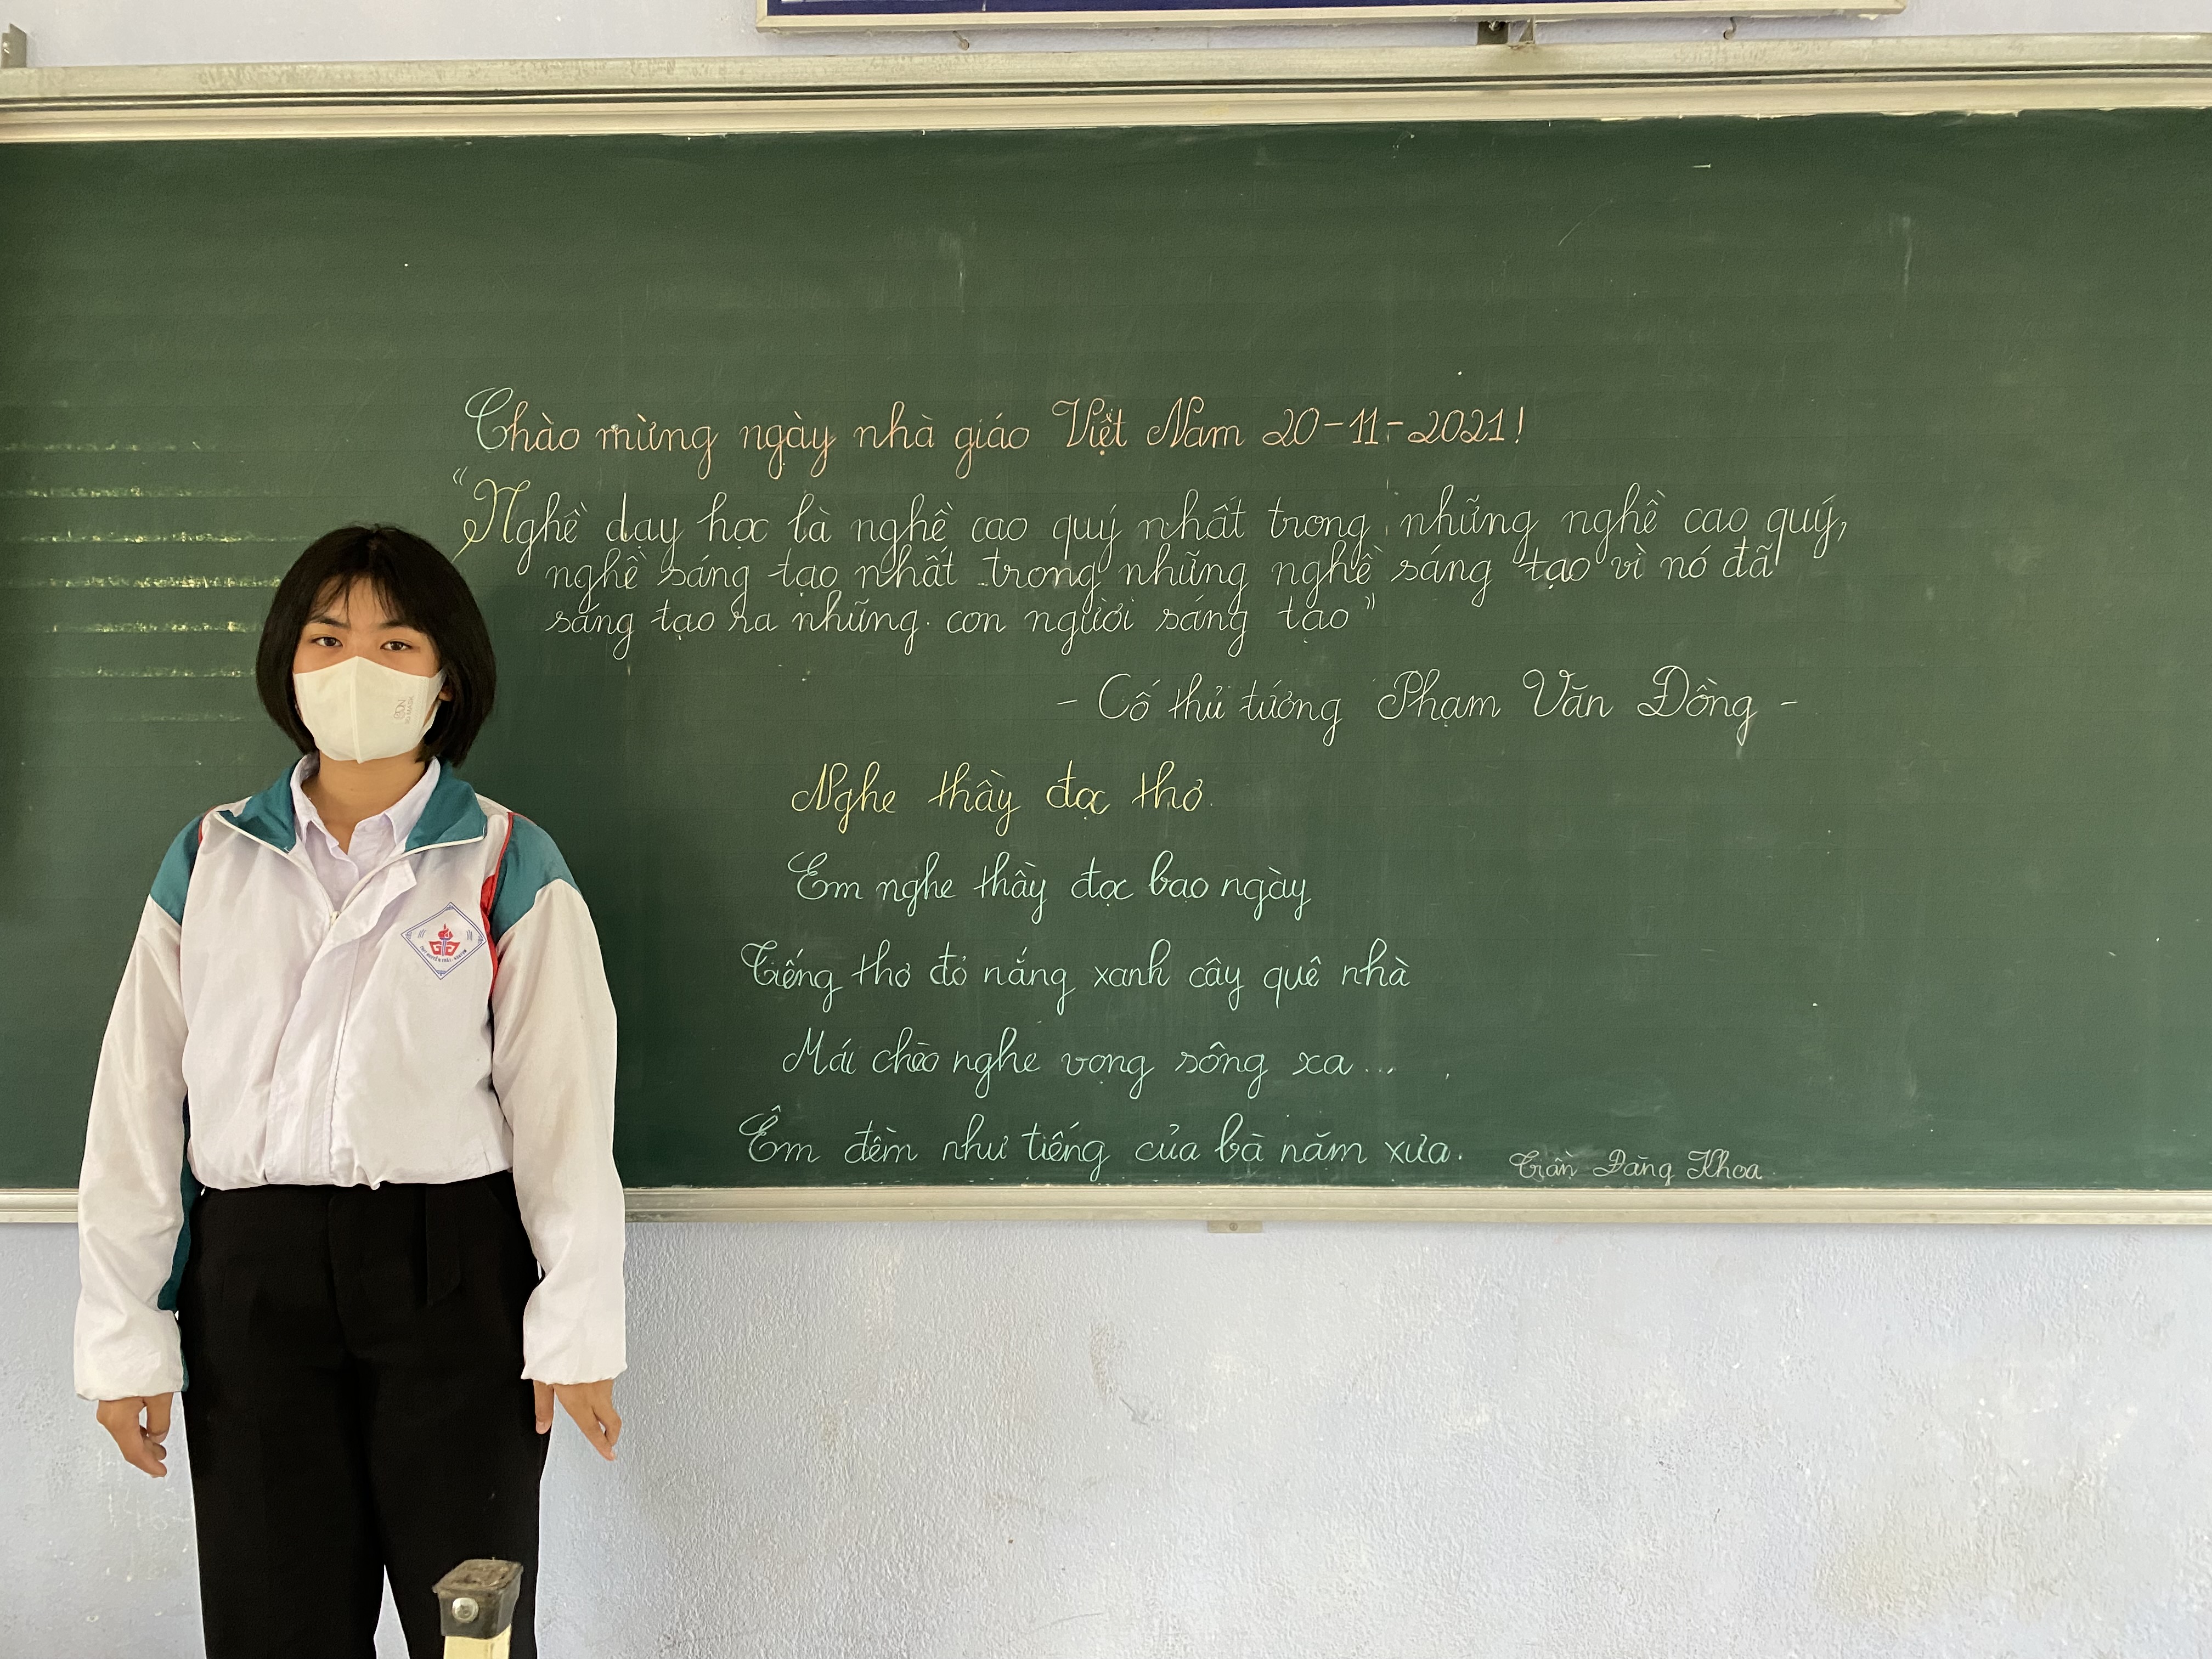 Chào mừng ngày nhà giáo Việt Nam 20-11-2021!
"Nghề dạy học là nghề cao quý nhất trong những nghề cao quý,
nghề sáng tạo nhất trong những nghề sáng tạo vì nó đã
sáng tạo ra những con người sáng tạo"
- Cố thủ tướng Phạm Văn Đồng -
Nghe thầy đọc thơ.
Em nghe thầy đọc bao ngày
Tiếng thơ đỏ nắng xanh cây quê nhà
Mái chèo nghe vọng sông xa...
Êm đềm như tiếng của bà năm xưa.
Trần Đăng Khoa